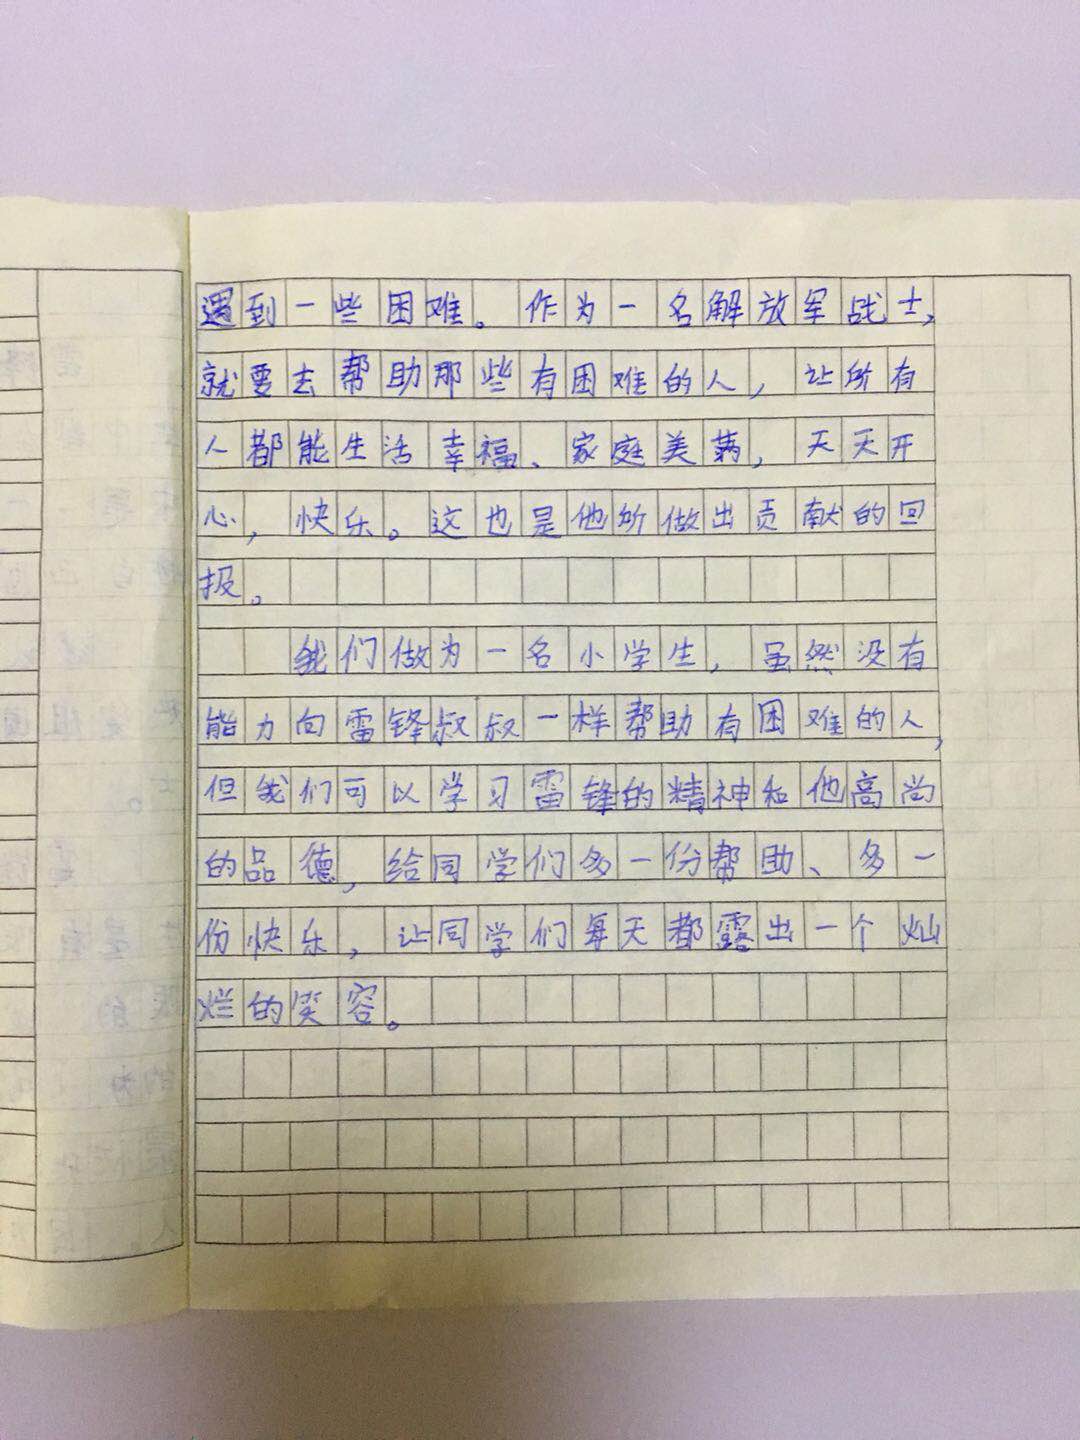 遇到一些困难。作为一名解放军战士，
就要去帮助那些有困难的人，让所有
人都能生活幸福、家庭美满，天天开
心，快乐。这也是他所做出贡献的回
报。
我们做为一名小学生，虽然没有
能力向雷锋叔叔一样帮助有困难的人，
但我们可以学习雷锋的精神和他高尚
的品德，给同学们多一份帮助、多一
份快乐，让同学们每天都露出一个灿
烂的笑容。